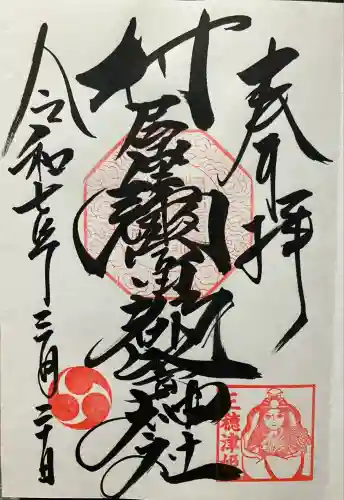 奉拝
村屋坐彌冨都比賣神社
令和七年三月二十日
三穂津姫